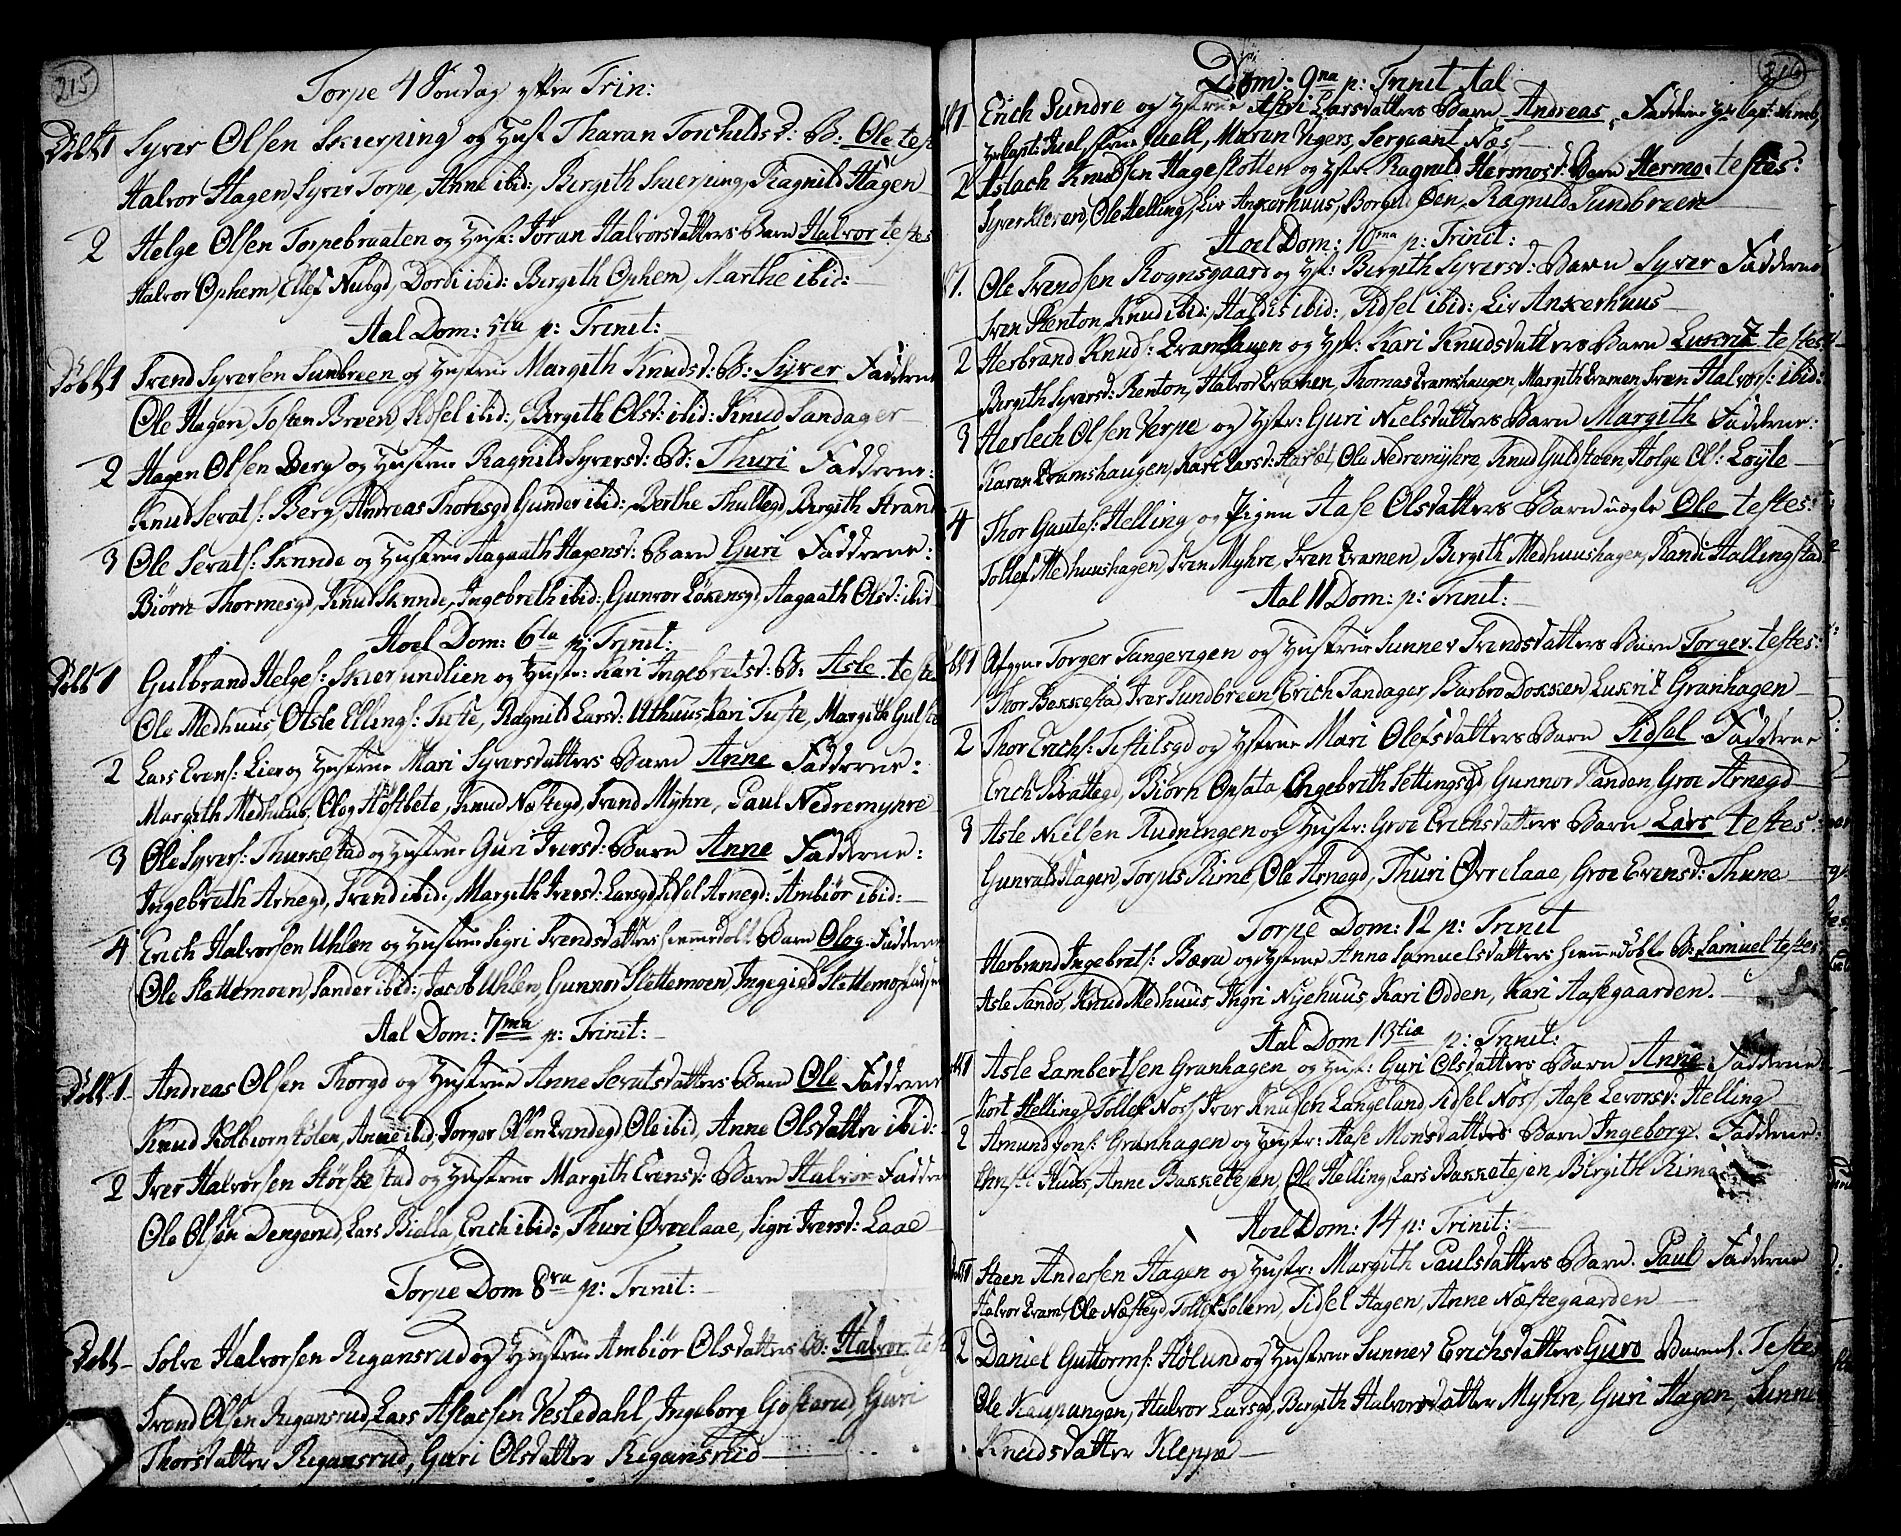 215
Torpe 4 Søndag efter Trin:
Døbt 1 Syver Olsen Skierping og Hust Tharan Torchilds d: B: Ole test
Halvor Hagen, Syver Torpe, Anne ibid:, Bergith Skierping, Ragnild Hagen
2 Helge Olsen Torpebraaten og Hust: Jøran Halvorsdatters Barn Halvor testes
Halvor Ophem, Ellef Nubgd, Dordi ibid: Bergith Ophem, Marthe ibid:
Aal Dom: 5ta p: Trinit:
Døbt 1 Svend Syversen Sunbreen og Hustrue Margith Knudsd: B: Syver Fadderne
Ole Hagen, Tosten Breen Sidsel ibid:, Bergith Olsd: ibid: Knud Sandager
2 Hagen Olsen Berg og Hustrue Ragnild Syversd: B: Thuri Fadderne:
Knud Serats: Berg, Andreas Thoresgd Gunder ibid:, Berthe Thullegd, Bergith Strand
3 Ole Serats: Skinde og Hustrue Aagaath Hagensd: Barn Guri Fadderne:
Biørn Thormesgd, Knud Skinde, Ingebreth ibid: Gunvor Løkensgd Aagaath Olsd: ibid
Hoel Dom: 6ta p: Trinit:
Døbt 1 Gulbrand Helges: Skierundlien og Hustr: Kari Ingebretsd: B: Asle teste
Ole Medhuus, Asle Ellings: Tufte, Ragnild Larsd: Uthuus Kari Tufte, Margith Gul
2 Lars Evens: Lier og Hustrue Mari Syversdatters Barn Anne Fadderne:
Margith Medhuus, Olog Høftbete, Knud Næstegd, Svend Myhre, Paul Nedremyhre
3 Ole Syvers: Thurkestad og Hustrue Guri Iversd: Barn Anne Fadderne:
Ingebreth Arnegd, Svend ibid:, Margith Iversd: Larsgd, Sidsel Arnegd: Ambiør ibid:
4 Erich Halvorsen Uhlen og Hustrue Sigri Svendsdatters hiemmedøbt Barn Olog Fadderne
Ole Slettemoen, Sander ibid:, Jacob Uhlen, Gunnor Slettemoen, Ingegierd Slettemoe
Aal Dom: 7ma p: Trinit:
Døbt 1 Andreas Olsen Thorgd og Hustrue Anne Seratsdatters Barn Ole Fadderne
Knud Kolbiørn, Anne ibid, Torger Olsen Evindegd Ole ibid, Anne Olsdatter ibid:
2 Iver Halvorsen Størkestad og Hustrue Margith Evensd: Barn Halvor Fadderne
Ole Olsen Dengerud, Lars Biella, Erich ibid:, Thuri Øvrelaae, Sigri Iversd: Laae
Torpe Dom 8va p: Trinit:
Døbt Solve Halvorsen Regansrud og Hustrue Ambiør Olsdatters B: Halvor test
Svend Olsen Regansrud, Lars Aslacsen Vesledahl, Ingeborg Giøsterud, Guri
Thorsdatter Regansrud, Guri Olsdatter Regansrud
216
Dom: 9na p: Trinit Aal
1 Erich Sundre og Hustrue Astri Larsdatters Barn Andreas, Fadderne Hr Capt:
Maren Vigers, Sergeant Næs
2 Aslach Knudsen Hageslotten og Hustr: Ragnild Hermosd: Barn Hermo testes:
Syver Kleverd, Ole Helling, Liv Ankerhuus, Borgild Øen, Ragnild Sundbreen
Hoel Dom: 10ma p: Trinit:
1. Ole Svendsen Rognsgaard og Hst: Bergith Syversd: Barn Syver Fadderne
Sven Renton Knud ibid:, Haldis ibid:, Sidsel ibid: Liv Ankerhuus
2 Herbrand Knuds: Eramhaugen og Hst: Kari Knudsdatters Barn Lukriz testes
Bergith Syversd: Renton, Halvor Eramen, Thomas Eramshaugen, Margith Eramen Sven Halvors: ibid:
3 Herlech Olsen Verpe og Hustr: Guri Nielsdatters Barn Margith Fadderne:
Karen Eramshaugen, Kari Larsd: Ole Nedremyhre, Knud Guldsteen Helge Ols: Løyte
4 Thor Gautes: Helling og Pigen Aase Olsdatters Barn uægte Ole testes:
Tollef Medhuushagen, Sven Myhre, Sven Eramen, Bergith Medhuushagen, Randi Hallingstad
Aal 11 Dom: p: Trinit:
1 Afggne Torger Tangevigen og Hustrue Sunnev Svendsdatters Barn Torger testes:
Thor Bakkestad Iver Sundbreen, Erich Sandager, Barbro Dokken Lukriz Granhagen
2 Thor Erichs: Testilsgd og Hstrue Mari Olefsdatters Barn Sidsel Fadderne
Erich Brattegd, Biørn Opsata Engebrith Settingsgd Gunnor Sanden, Groe Arnegd
3 Asle Nielsen Rudningen og Hustr: Groe Erichsdatters Barn Lars testes:
Gunvald Hagen, Torpus Rime, Ole Arnegd, Thuri Øvrelaae, Groe Evensd: Thune
Torpe Dom: 12 p: Trinit
Herbrand Ingebrets: Bæra og Hstrue Anna Samuelsdatters hiemmedøbte B: Samuel testes
Asle Sando, Knud Medhuus, Ingri Nyehuus, Kari Odden, Kari Aasegaarden.
Aal Dom 13tia p: Trinit:
1 Asle Lambertsen Granhagen og Hust: Guri Olsdatters Barn Anne Fadderne:
Kort Helling, Tollef Nos, Iver Knudsen Langeland, Sidsel Nos, Aase Levorsd: Helling
2 Amund Jons: Granhagen og Hustr: Aase Monsdatters Barn Ingeborg. Fadderne:
Huus, Anne Bakketejen, Ole Helling, Lars Bakketejen, Birgith Rime
Hoel Dom: 14 p: Trinit:
Steen Andersen Hagen og Hustr: Margith Paulsdatters Barn. Paul Fadderne
Halvor Eram, Ole Næstegd, Tollef Solem, Sidsel Hagen, Anne Næstegaarden
2 Daniel Guttorms: Hølund og Hustrue Sunnev Erichsdatters Guro Barnet. Testes
Ole Kaupangen, Halvor Larsgd, Bergith Halvorsdatter Myhre, Guri Hagen, Sunnev
Knudsdatter Kleppe